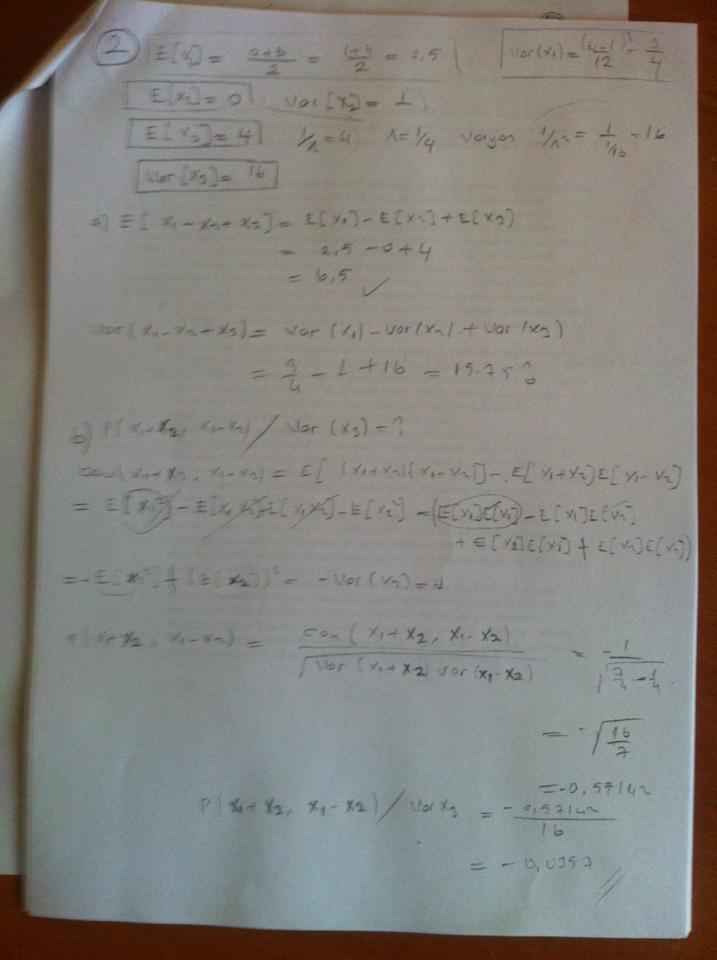 2) E[x1] = a+b/2 = 1+4/2 = 2,5 Var(x1) = (4-1)²/12 = 3/4
E[x2] = 0 Var[x2] = 1
E[x3] = 4 1/λ = 4 λ = 1/4 1/λ² = 1/1/16 = 16
Var[x3] = 16
a) E[x1 - x2 + x3] = E[x1] - E[x2] + E[x3]
= 2,5 - 0 + 4
= 6,5 ✓
Var(x1 - x2 + x3) = Var(x1) - Var(x2) + Var(x3)
= 3/4 - 1 + 16 = 15.75 ?
b) P(x1+x2, x1-x2) / Var(x3) = ?
cov(x1+x2, x1-x2) = E[(x1+x2)(x1-x2)] - E[x1+x2]E[x1-x2]
= E[x1²] - E[x1x2] + E[x1x2] - E[x2²] - (E[x1]E[x1] - E[x1]E[x2]
+ E[x2]E[x1] + E[x2]E[x2])
= -E[x2²] + (E[x2])² = -Var(x2) =
P(x1+x2, x1-x2) = cov(x1+x2, x1-x2) / √Var(x1+x2) Var(x1-x2) = -1 / √7/4 · -1/4
= -√16/7
= -0,57142
P(x1+x2, x1-x2) / Var x3 = -0,57142/16
= -0,0357 //